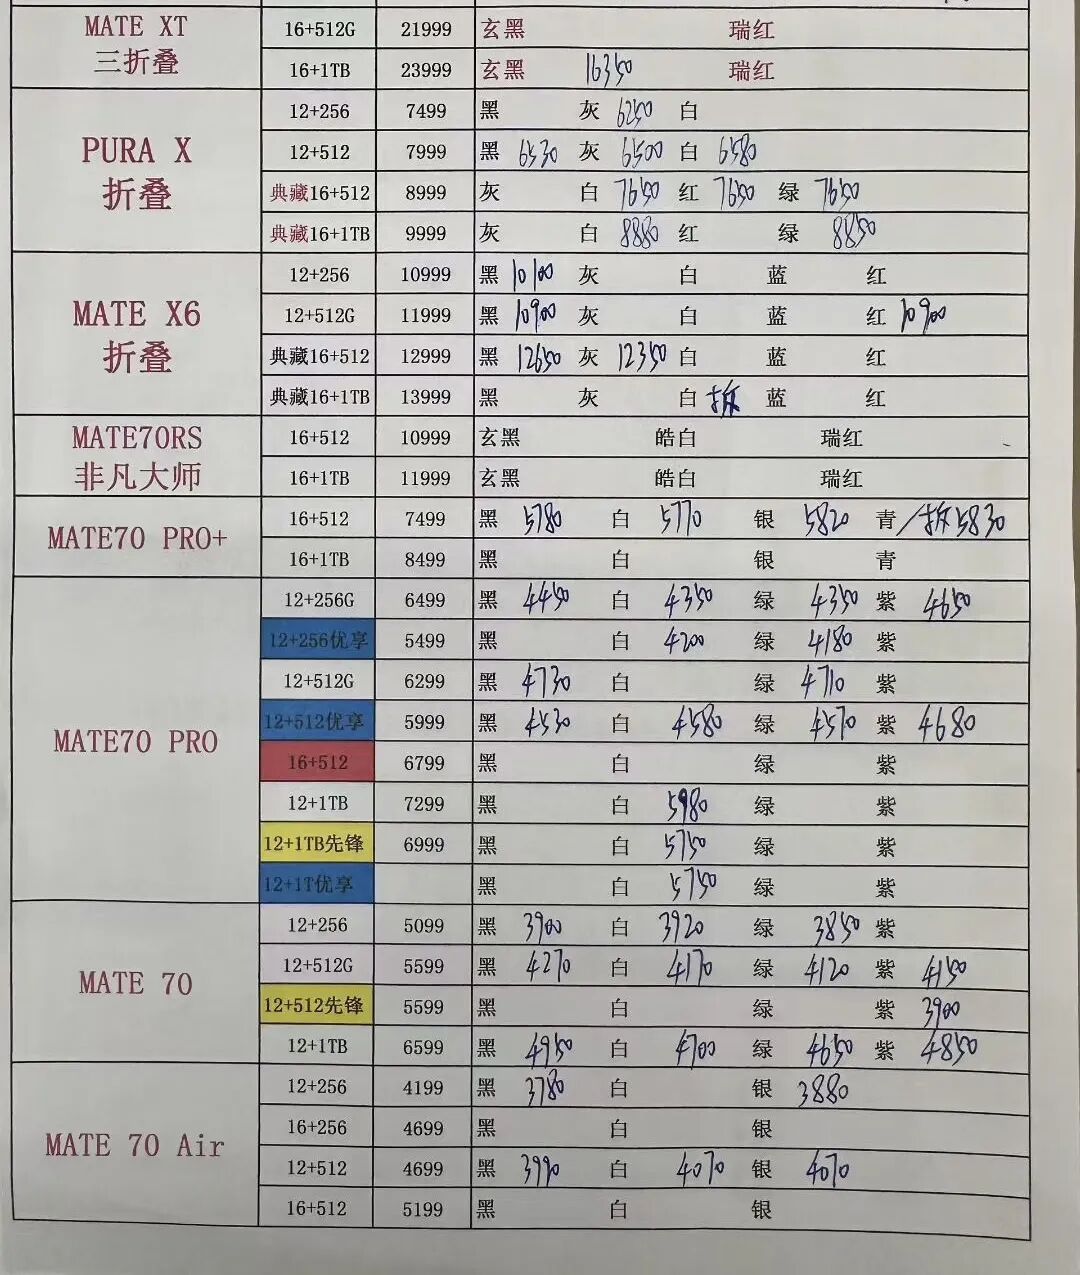 MATE XT
三折叠
16+512G 21999 玄黑 瑞红
16+1TB 23999 玄黑 16350 瑞红
PURA X
折叠
12+256 7499 黑 灰 6250 白
12+512 7999 黑 6530 灰 6500 白 6580
典藏16+512 8999 灰 白 7650 红 7650 绿 7650
典藏16+1TB 9999 灰 白 8880 红 绿 8850
MATE X6
折叠
12+256 10999 黑 10100 灰 白 蓝 红
12+512G 11999 黑 10900 灰 白 蓝 红 10900
典藏16+512 12999 黑 12650 灰 12350 白 蓝 红
典藏16+1TB 13999 黑 灰 白 拆 蓝 红
MATE70RS
非凡大师
16+512 10999 玄黑 皓白 瑞红
16+1TB 11999 玄黑 皓白 瑞红
MATE70 PRO+
16+512 7499 黑 5780 白 5770 银 5820 青 /拆5830
16+1TB 8499 黑 白 银 青
MATE70 PRO
12+256G 6499 黑 4450 白 4350 绿 4350 紫 4650
12+256优享 5499 黑 白 4200 绿 4180 紫
12+512G 6299 黑 4730 白 绿 4710 紫
12+512优享 5999 黑 4530 白 4580 绿 4570 紫 4680
16+512 6799 黑 白 绿 紫
12+1TB 7299 黑 白 5980 绿 紫
12+1TB先锋 6999 黑 白 5750 绿 紫
12+1T优享 黑 白 5750 绿 紫
MATE 70
12+256 5099 黑 3900 白 3920 绿 3850 紫
12+512G 5599 黑 4270 白 4170 绿 4120 紫 4150
12+512先锋 5599 黑 白 绿 紫 3900
12+1TB 6599 黑 4950 白 4700 绿 4650 紫 4850
MATE 70 Air
12+256 4199 黑 3780 白 银 3880
16+256 4699 黑 白 银
12+512 4699 黑 3990 白 4070 银 4070
16+512 5199 黑 白 银